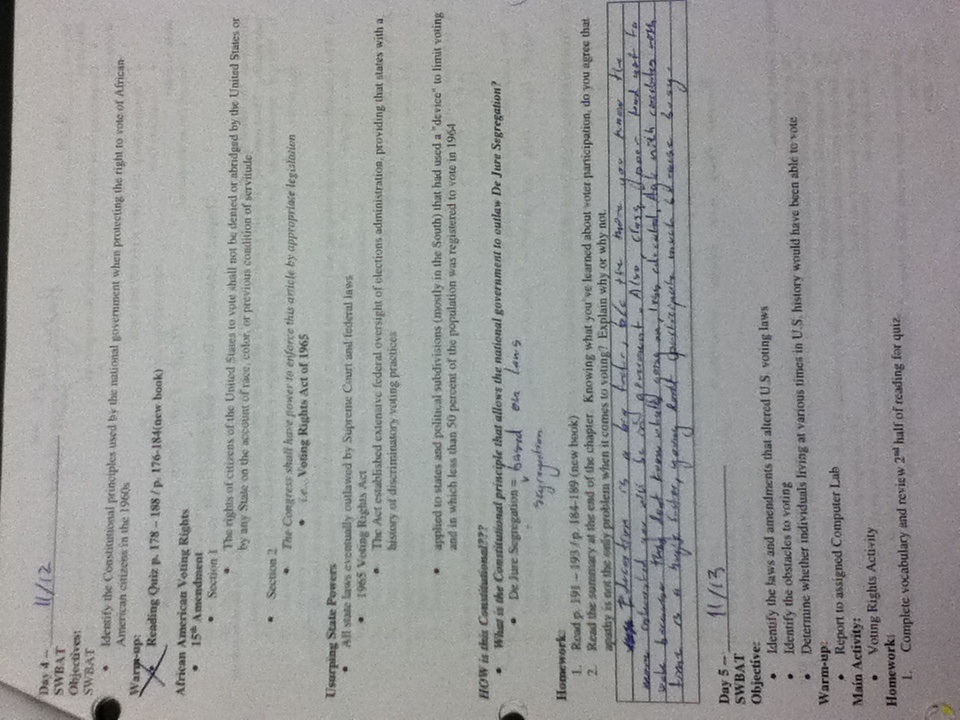 Day 4 – 11/12
SWBAT
Objectives:
SWBAT
• Identify the Constitutional principles used by the national government when protecting the right to vote of African-
American citizens in the 1960s
Warm-up:
Reading Quiz p. 178 – 188 / p. 176-184(new book)
African American Voting Rights
• 15th Amendment
• Section 1
• The rights of citizens of the United States to vote shall not be denied or abridged by the United States or
by any State on the account of race, color, or previous condition of servitude
• Section 2
• The Congress shall have power to enforce this article by appropriate legislation
• i.e., Voting Rights Act of 1965
Usurping State Powers
• All state laws eventually outlawed by Supreme Court and federal laws
• 1965 Voting Rights Act
• The Act established extensive federal oversight of elections administration, providing that states with a
history of discriminatory voting practices
• applied to states and political subdivisions (mostly in the South) that had used a "device" to limit voting
and in which less than 50 percent of the population was registered to vote in 1964
HOW is this Constitutional???
• What is the Constitutional principle that allows the national government to outlaw De Jure Segregation?
• De Jure Segregation = based on laws
segregation
Homework:
1. Read p. 191 – 193 / p. 184-189 (new book)
2. Read the summary at the end of the chapter. Knowing what you've learned about voter participation, do you agree that
apathy is not the only problem when it comes to voting? Explain why or why not.
Education is a big factor, b/c the more you know the
more interested you will be in government. Also, class, poor tend not to
vote because they don't know what's going on, less educated, Age with
time is a huge factor, young don't participate much because busy.
Day 5 – 11/13
SWBAT
Objective:
• Identify the laws and amendments that altered U.S. voting laws
• Identify the obstacles to voting
• Determine whether individuals living at various times in U.S. history would have been able to vote
Warm-up:
• Report to assigned Computer Lab
Main Activity:
• Voting Rights Activity
Homework:
1. Complete vocabulary and review 2nd half of reading for quiz